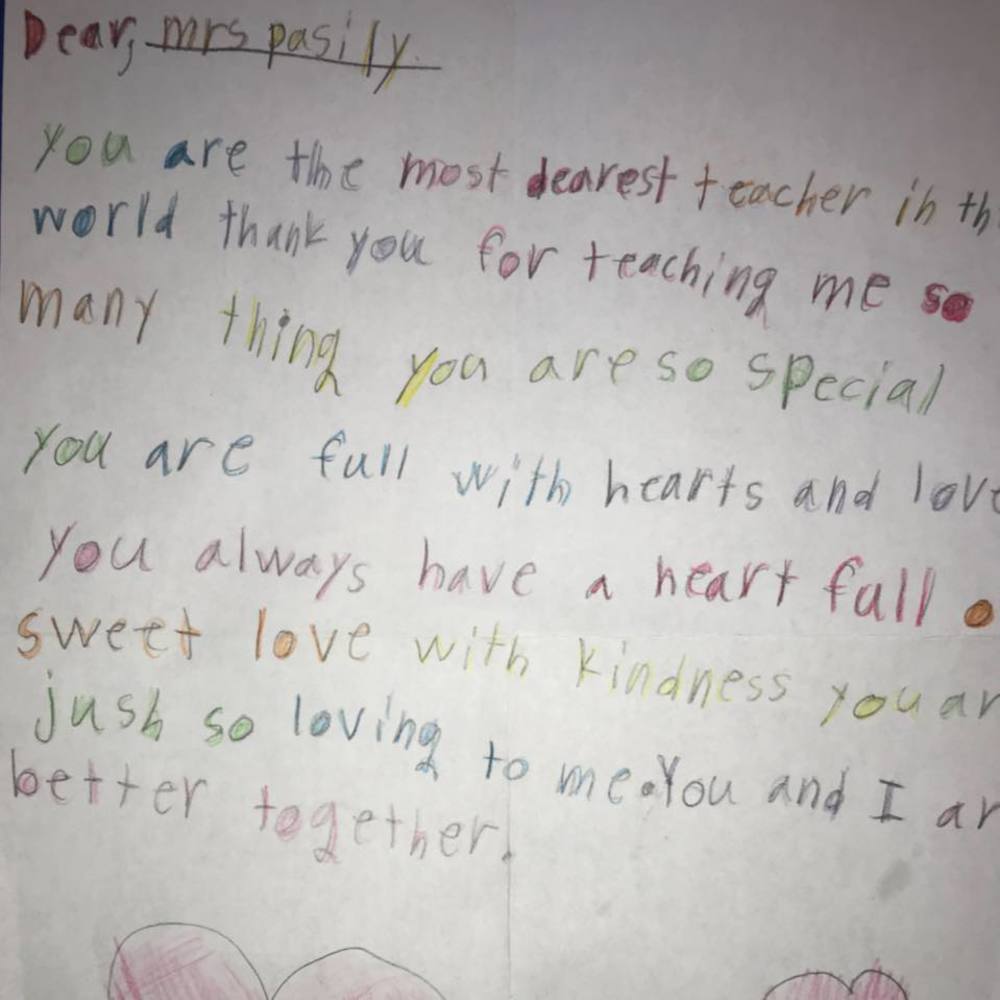 Dear, mrs pasily.
you are the most dearest teacher in th
world thank you for teaching me so
many thing you are so special
you are full with hearts and love
you always have a heart full o
sweet love with kindness you ar
jush so loving to me. You and I ar
better together.